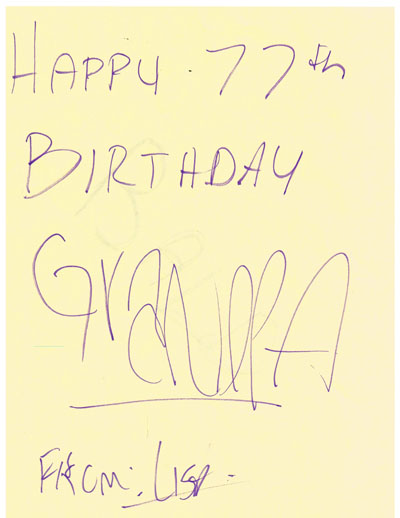 HAPPY 77th
BIRTHDAY
GRANDPA
FROM: LISA